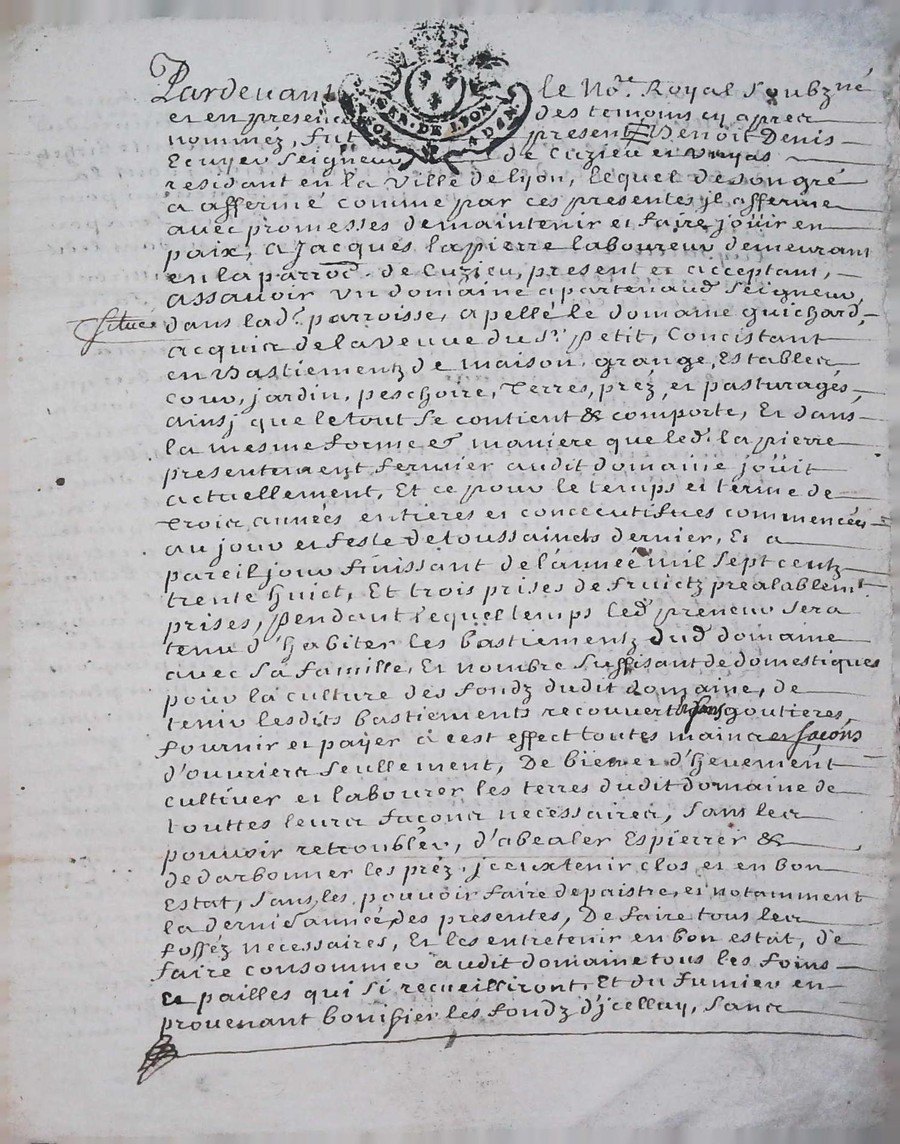 Pardevant le No.re Royal Soubzné
et en presence des temoins cy apres
nommez, fut present Benoit Denis
Ecuyer Seigneur de Cuzieu et
residant en la ville de Lyon, lequel de son gré
a affermé comme par ces presentes jl afferme
avec promesses de maintenir et faire joüir en
paix, a Jacques Lapierre laboureur demeurant
en la parroc. de Cuzieu, present et acceptant,
assavoir un domaine apartenand. Seigneur,
situé
dans lad. parroisse, apellé le domaine Guichard,
acquis de la veuve du Sr. Petit, Concistant
en Bastiementz de maison, grange, Estables
cour, jardin, peschoire, Terres, préz et pasturages,
ainsj que le tout se contient & comporte, Et dans
la mesme forme et maniere que led. la pierre
presentement fermier audit domaine joüit
actuellement, Et ce pour le temps et terme de
Trois années entieres et concecutifves commencées
au jour et feste de toussaincts dernier, Et a
pareil jour finissant de l'année mil sept centz
trente huict, Et trois prises de fruictz prealablemt
prises, pendant lequel temps led. preneur sera
tenu d'habiter les bastiementz dud. domaine
avec sa famille, Et nombre suffisant de domestiques
pour la culture des fondz dudit domaine, de
tenir lesdits bastiements recouverts sans goutieres,
fournir et payer a cest effect toutes mains et facons
d'ouvriers seullement, De bien et d'hevement
cultiver et labourer les terres dudit domaine de
touttes leurs facons necessaires, sans les
pouvoir retroubler, d'abealer Espierrer &
de darbonner les préz, jceux tenir clos et en bon
Estat, sans les pouvoir faire depaistre, et notamment
la derniere année des presentes, De faire tous les
fosséz necessaires, Et les entretenir en bon estat, de
faire consommer audit domaine tous les foins
Et pailles qui si recueilliront, Et du fumier en
provenant bonifier les fondz d'jcelluy, sans
GEN. DE LYON